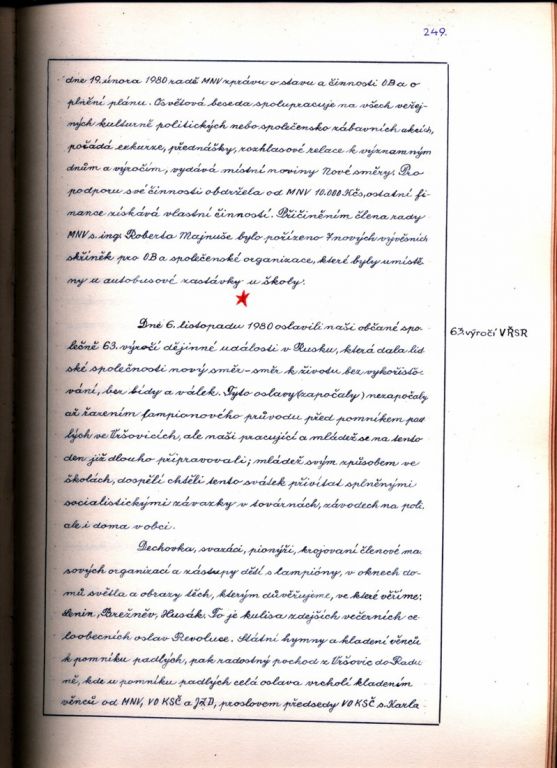 249.
dne 19. února 1980 radě MNV zprávu o stavu a činnosti OB a o
plnění plánu. Osvětová beseda spolupracuje na všech veřej-
ných kulturně politických nebo společensko zábavních akcích,
pořádá exkurze, přednášky, rozhlasové relace k významným
dnům a výročím, vydává místní noviny Nové směry. Pro
podporu své činnosti obdržela od MNV 10.000 Kčs, ostatní fi-
nance získává vlastní činností. Přičiněním člena rady
MNV s. ing. Roberta Majnuše bylo pořízeno 7 nových vývěsních
skříněk pro OB a společenské organizace, které byly umístě-
ny u autobusové zastávky u školy.
Dne 6. listopadu 1980 oslavili naši občané spo-
lečně 63. výročí dějinné události v Rusku, která dala lid-
ské společnosti nový směr-směr k životu bez vykořisťo-
vání, bez bídy a válek. Tyto oslavy (započaly) nezapočaly
až řazením lampionového průvodu před pomníkem pad-
lých ve Vršovicích, ale naši pracující a mládež se na tento
den již dlouho připravovali; mládež svým způsobem ve
školách, dospělí chtěli tento svátek přivítat splněnými
socialistickými závazky v továrnách, závodech na poli,
ale i doma v obci.
Dechovka, svazáci, pionýři, krojovaní členové ma-
sových organizací a zástupy dětí s lampióny, v oknech do-
mů světla a obrazy těch, kterým důvěřujeme, ve které věříme:
Lenin, Brežněv, Husák. To je kulisa zdejších večerních ce-
loobecních oslav Revoluce. Státní hymny a kladení věnců
k pomníku padlých, pak radostný pochod z Vršovic do Radu-
ně, kde u pomníku padlých celá oslava vrcholí kladením
věnců od MNV, VO KSČ a JZD, proslovem předsedy VO KSČ s. Karla
63. výročí VŘSR